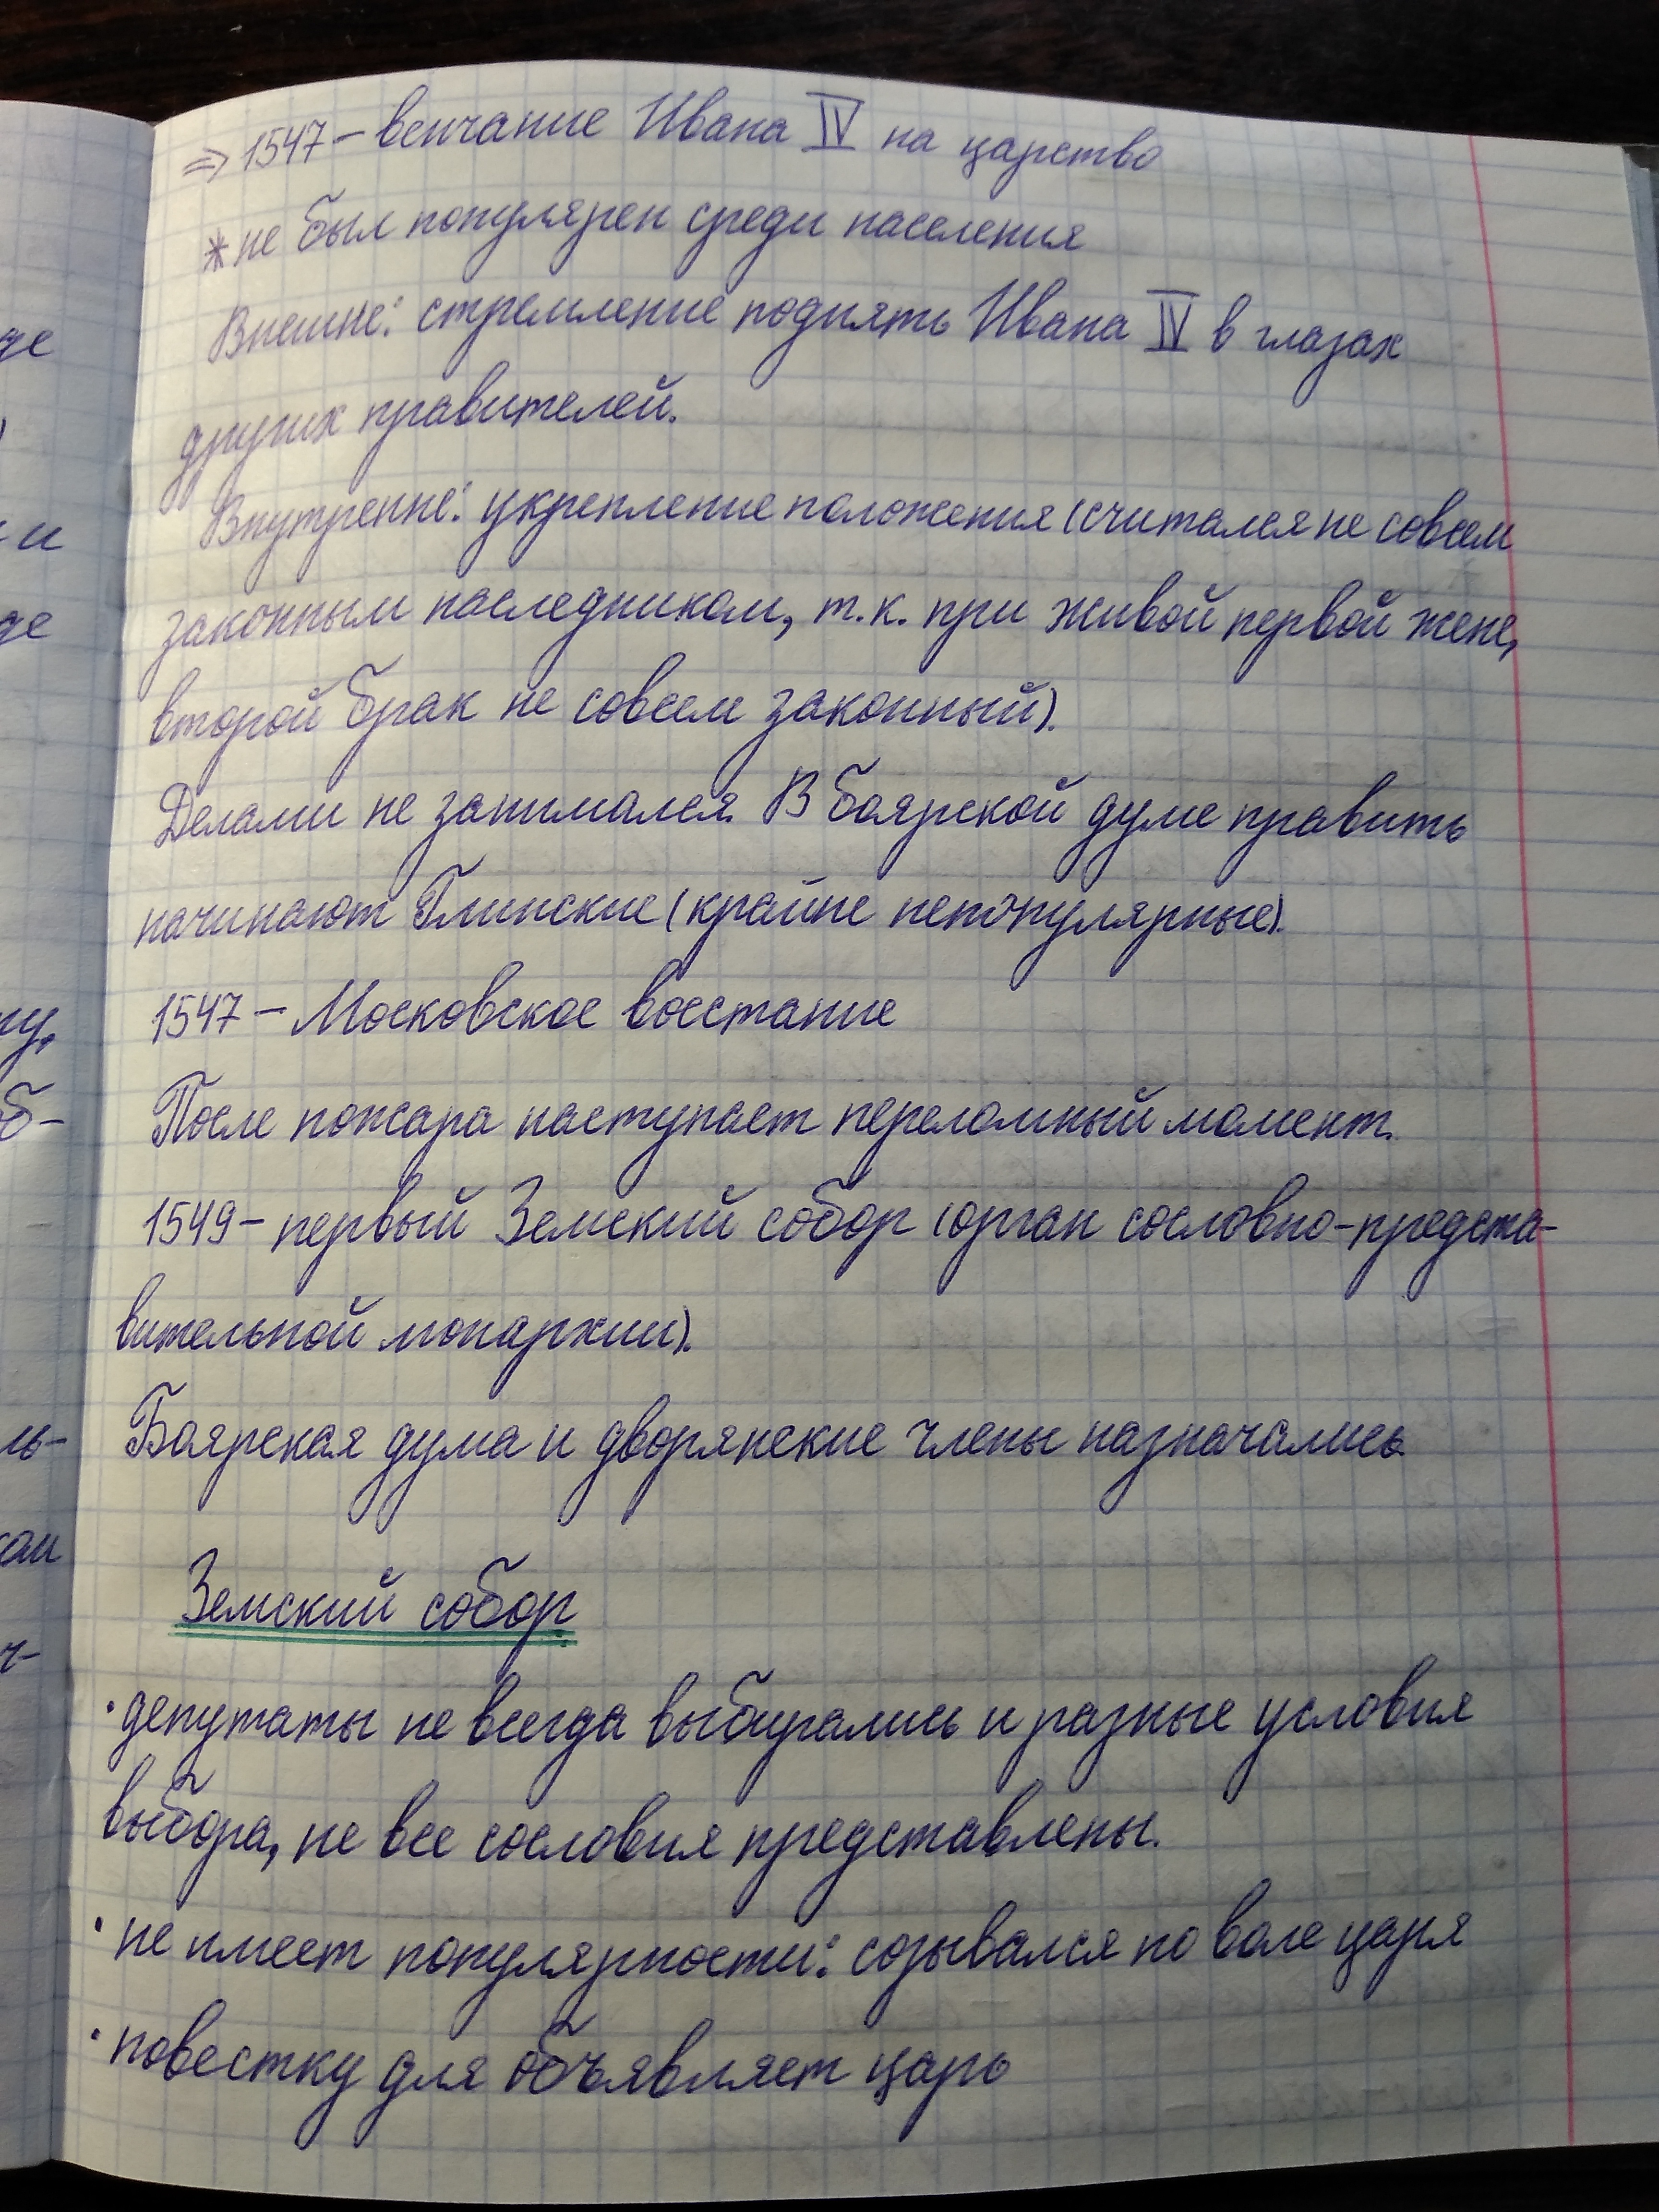 ⇒ 1547 – венчание Ивана IV на царство
* не был популярен среди населения
Внешне: стремление поднять Ивана IV в глазах
других правителей.
Внутренне: укрепление положения (считался не совсем
законным наследником, т.к. при живой первой жене,
второй брак не совсем законный).
Делами не занимался. В боярской думе править
начинают Глинские (крайне непопулярные).
1547 – Московское восстание
После пожара наступает переломный момент.
1549 – первый Земский собор (орган сословно-предста-
вительной монархии).
Боярская дума и дворянские члены назначались
Земский собор
· депутаты не всегда выбирались и разные условия
выбора, не все сословия представлены.
· не имеет популярности: созывался по воле царя
· повестку для объявляет царь